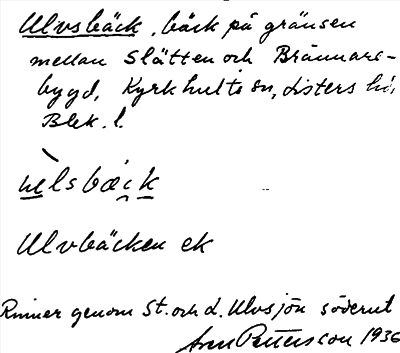 Ulvsbäck, bäck på gränsen
mellan Slätten och Brännare-
bygd, Kyrkhults sn, Listers hd,
Blek. l.
Ulvbäcken ek
Rinner genom St. och L. Ulvsjön söderut
Pettersson 1936